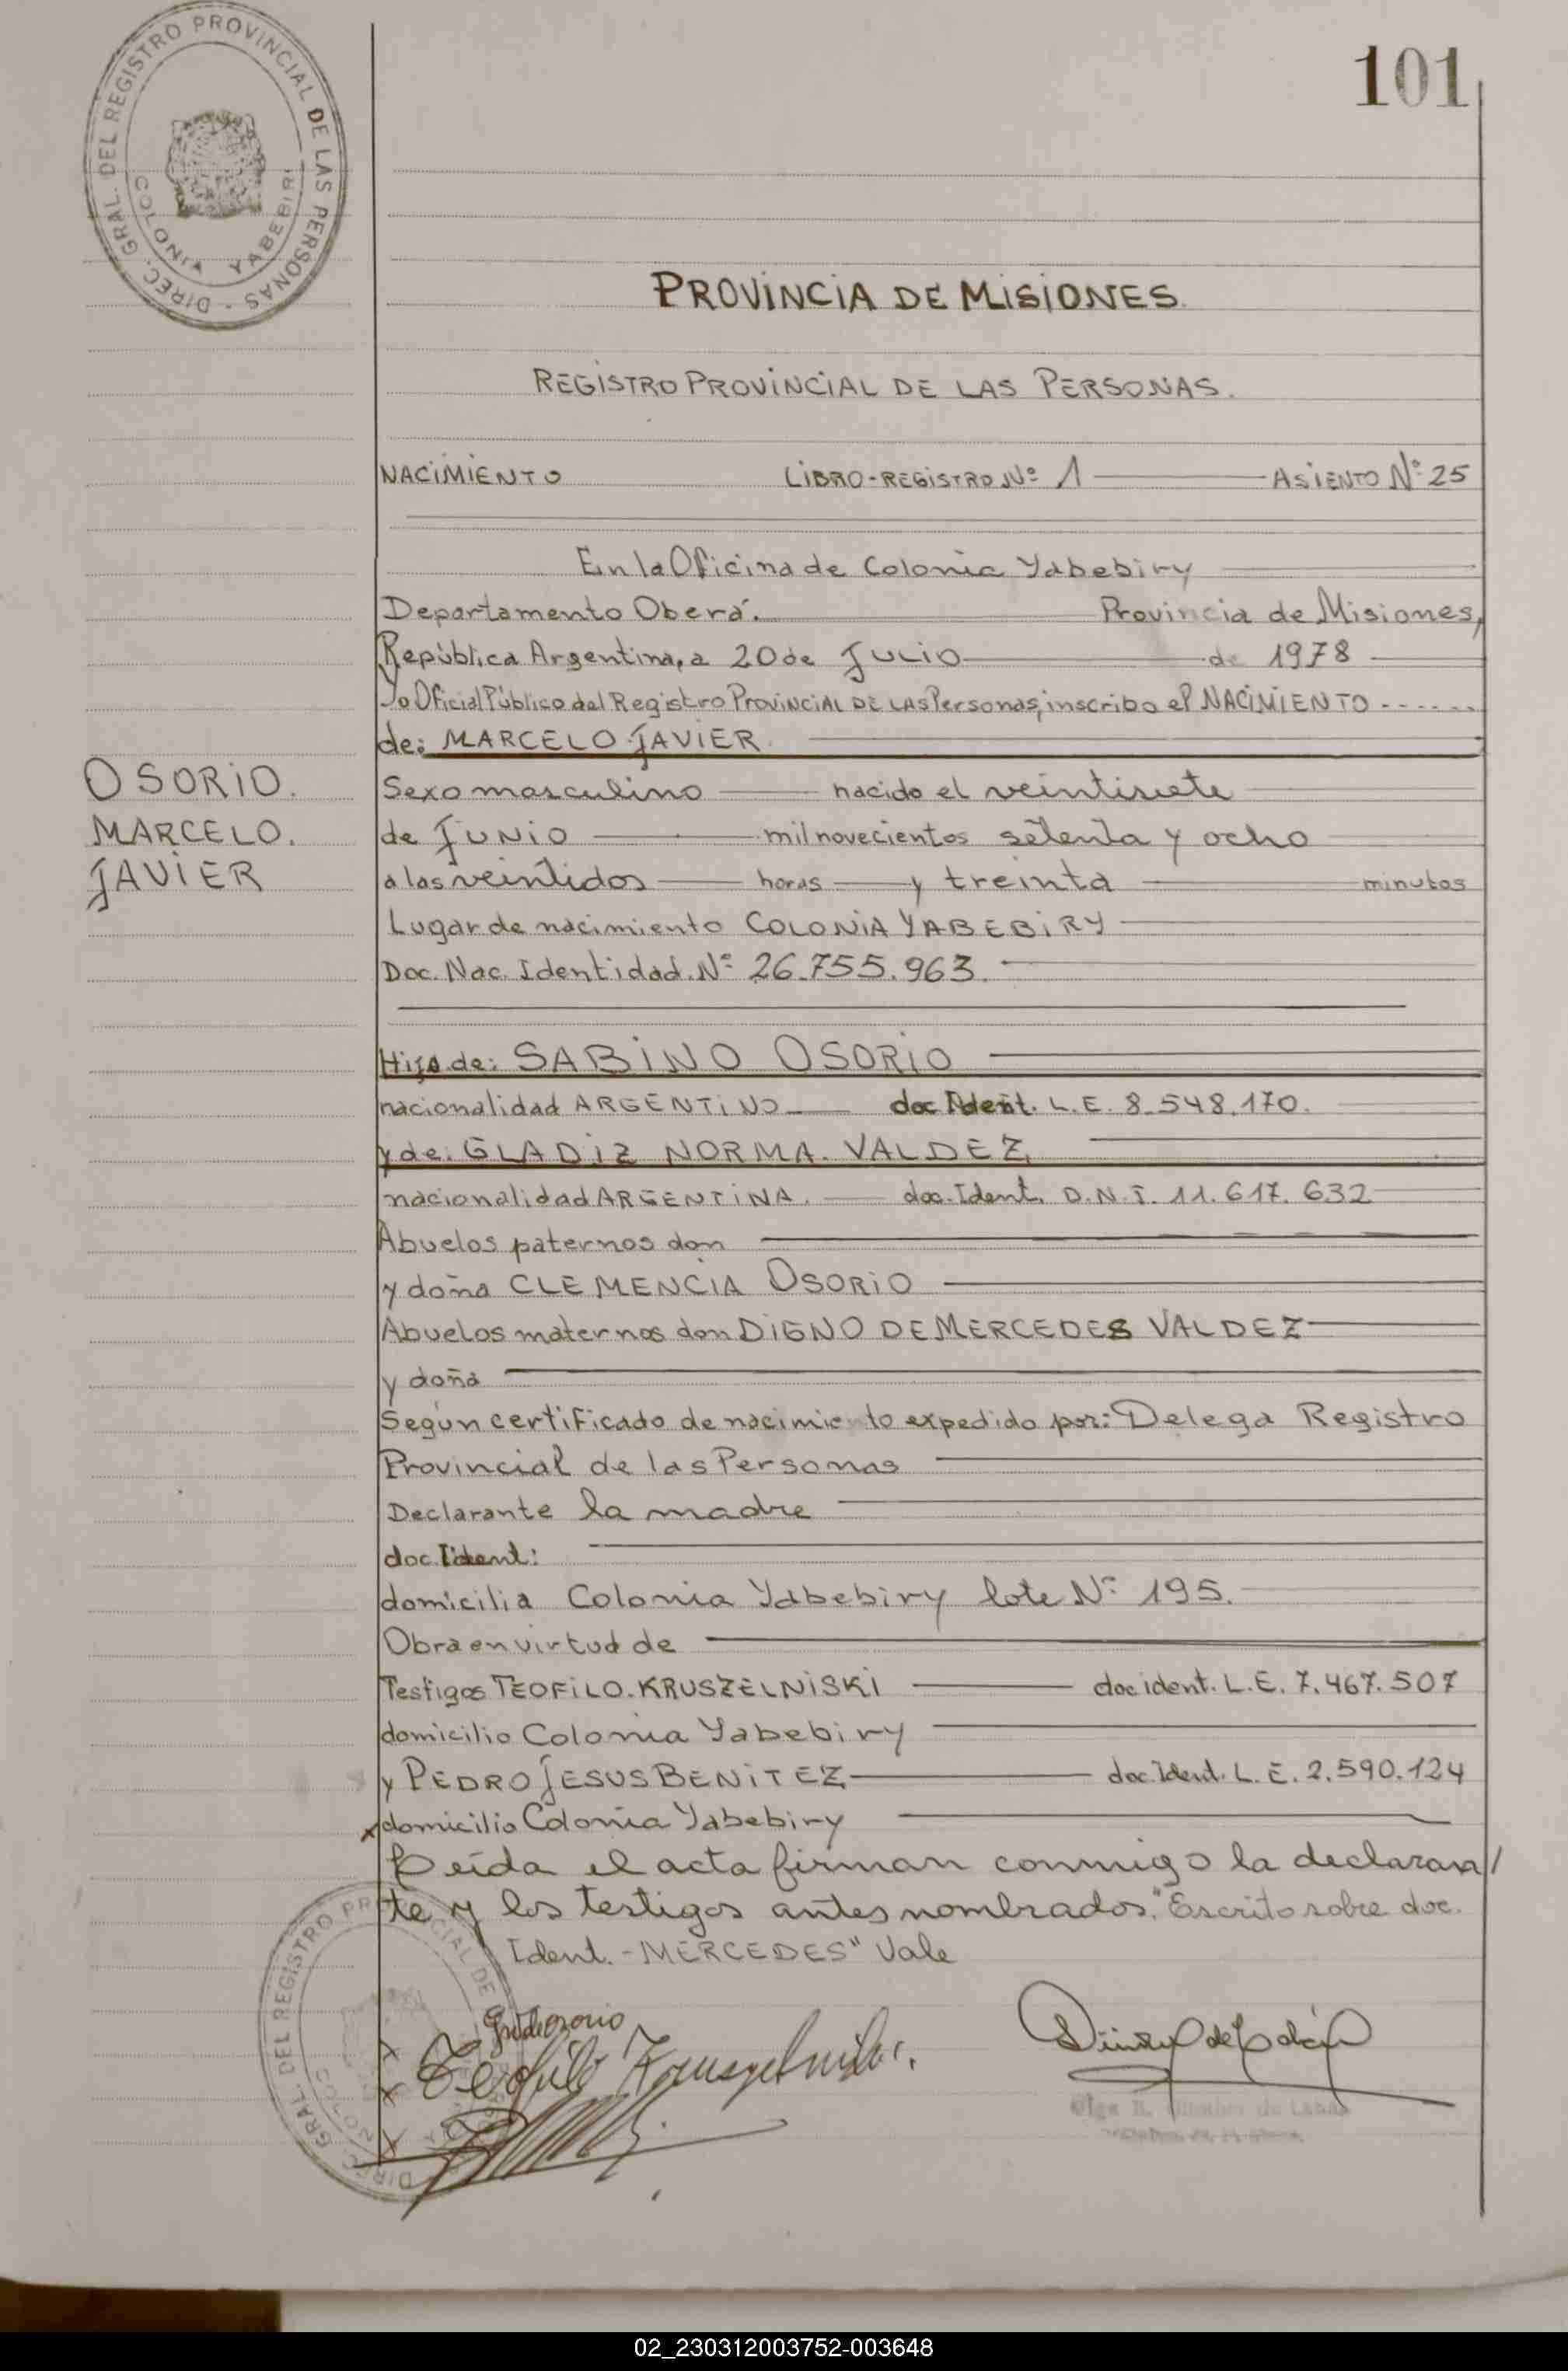 DIREC. GRAL. DEL REGISTRO PROVINCIAL DE LAS PERSONAS -
COLONIA YABEBIRI
101
PROVINCIA DE MISIONES.
REGISTRO PROVINCIAL DE LAS PERSONAS.
NACIMIENTO LIBRO-REGISTRO Nº 1 ASIENTO Nº 25
En la Oficina de Colonia Yabebiry
Departamento Oberá. Provincia de Misiones,
República Argentina, a 20 de JULIO de 1978
Yo Oficial Público del Registro PROVINCIAL DE LAS Personas, inscribo el NACIMIENTO ------
de: MARCELO JAVIER.
OSORIO.
MARCELO.
JAVIER
Sexo masculino nacido el veintisiete
de JUNIO mil novecientos setenta y ocho
a las veintidos horas y treinta minutos
Lugar de nacimiento COLONIA YABEBIRY
Doc. Nac. Identidad. Nº 26.755.963.
Hijo de: SABINO OSORIO
nacionalidad ARGENTINO doc Ident. L.E. 8.548.170.
y de: GLADIZ NORMA. VALDEZ
nacionalidad ARGENTINA. doc. Ident. D.N.I. 11.617.632
Abuelos paternos don
y doña CLEMENCIA OSORIO
Abuelos maternos don DIGNO DE MERCEDES VALDEZ
y doña
Según certificado de nacimiento expedido por: Delega Registro
Provincial de las Personas
Declarante la madre
doc. Ident:
domicilia Colonia Yabebiry lote Nº 195.
Obra en virtud de
Testigos TEOFILO. KRUSZELNISKI doc ident. L.E. 7.467.507
domicilio Colonia Yabebiry
y PEDRO JESUS BENITEZ doc. Ident. L.E. 2.590.124
x domicilio Colonia Yabebiry
Leída el acta firman conmigo la declaran/
te y los testigos antes nombrados. "Escrito sobre doc.
Ident. - MERCEDES" Vale
DIREC. GRAL. DEL REGISTRO
Teofilo
Olga
02_230312003752-003648